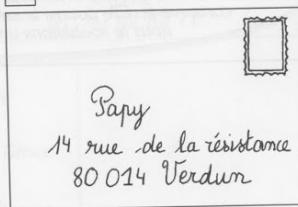 Papy
14 rue de la résistance
80 014 Verdun